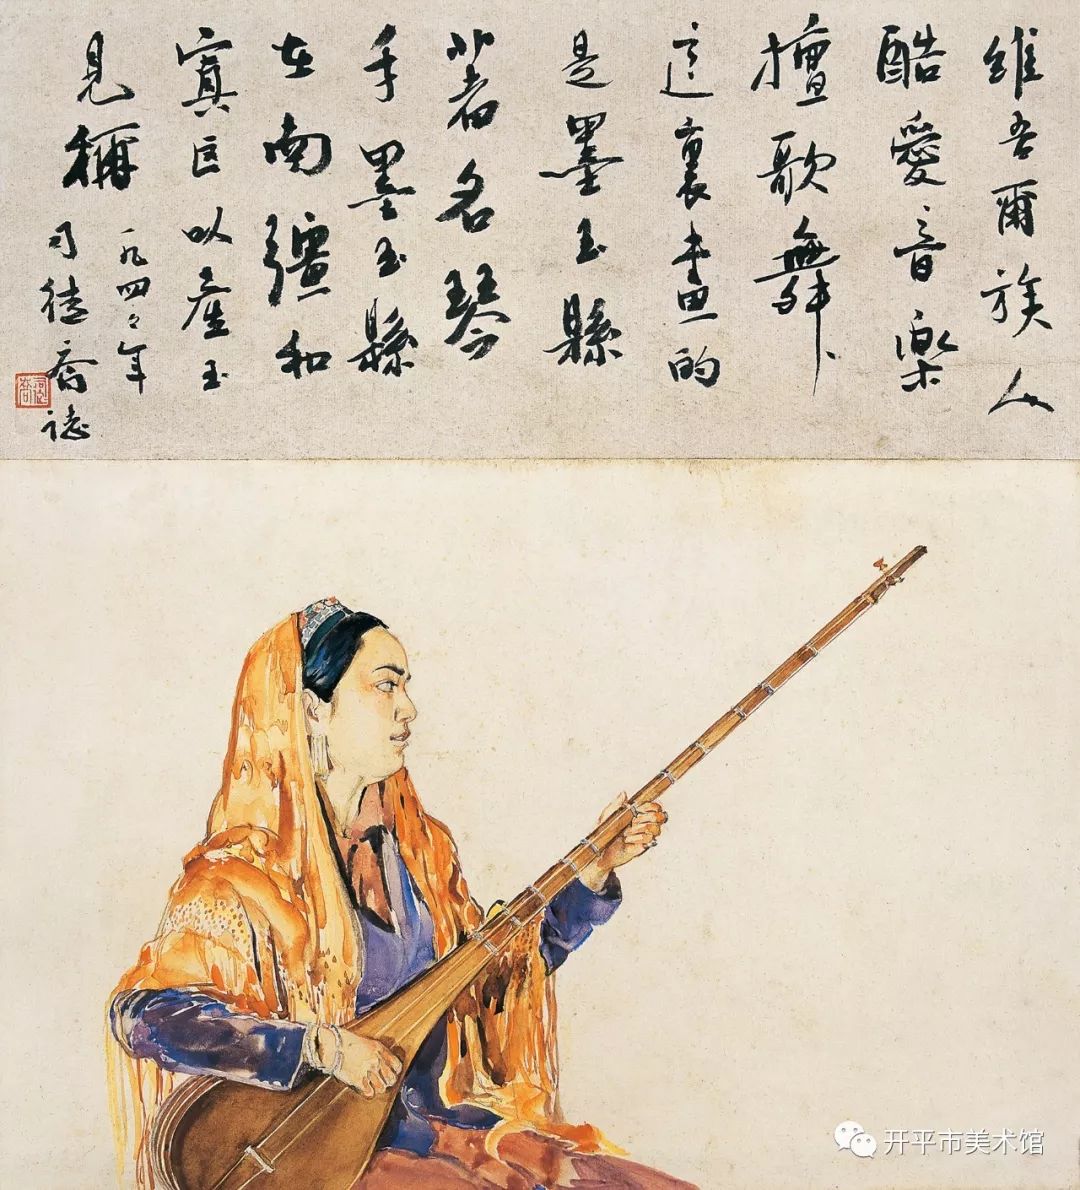 維吾爾族人
酷愛音樂
擅歌舞、
這裏畫的
是墨玉縣
著名琴
手墨玉縣
在南疆和
寘区以產玉
見稱 一九四々年
司徒喬誌
开平市美术馆